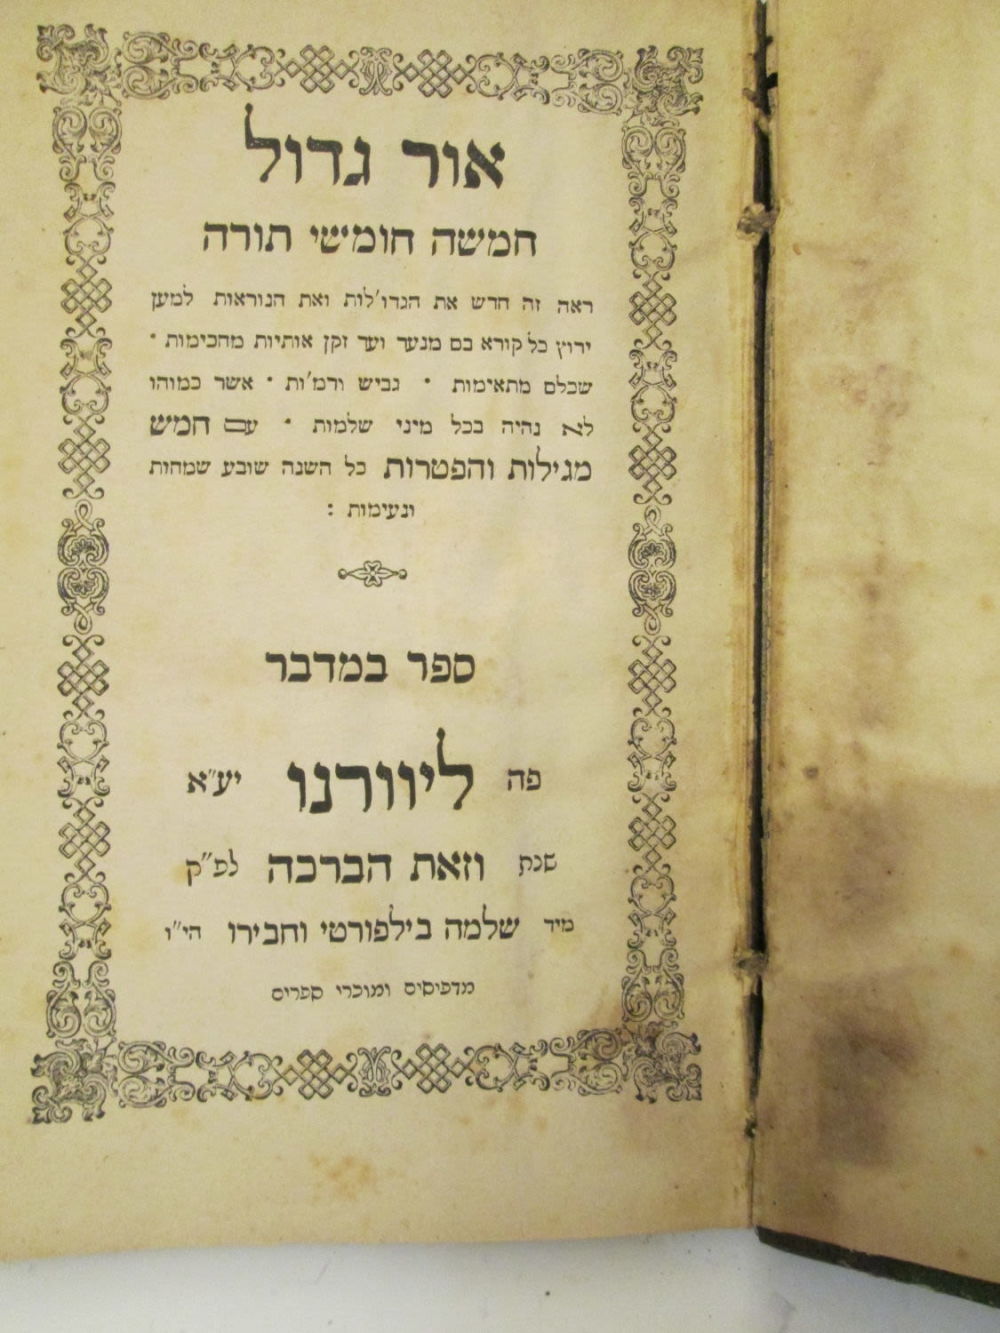 אור גדול
חמשה חומשי תורה
ראה זה חדש את הגדו'לות ואת הנוראות למען
ירוץ כל קורא בם מנער ועד זקן אותיות מחכימות ·
שכלם מתאימות · גביש ורמ'ות · אשר כמוהו
לא נהיה בכל מיני שלמות · עם חמש
מגילות והפטרות כל השנה שובע שמחות
ונעימות :
ספר במדבר
פה ליוורנו יע"א
שנת וזאת הברכה לפ"ק
מיד שלמה בילפורטי וחבירו הי"ו
מדפיסים ומוכרי ספרים